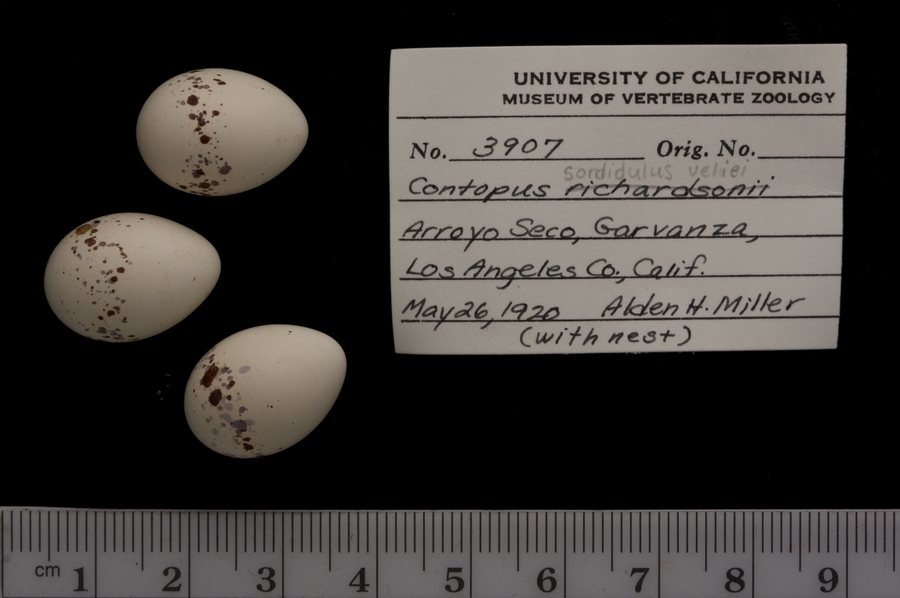 UNIVERSITY OF CALIFORNIA
MUSEUM OF VERTEBRATE ZOOLOGY
No. 3907 Orig. No.
sordidulus veliei
Contopus richardsonii
Arroyo Seco, Garvanza,
Los Angeles Co., Calif.
May 26, 1920 Alden H. Miller
(with nest)
cm 1 2 3 4 5 6 7 8 9